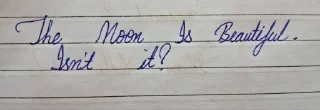 The Moon Is Beautiful.
Isn't it?